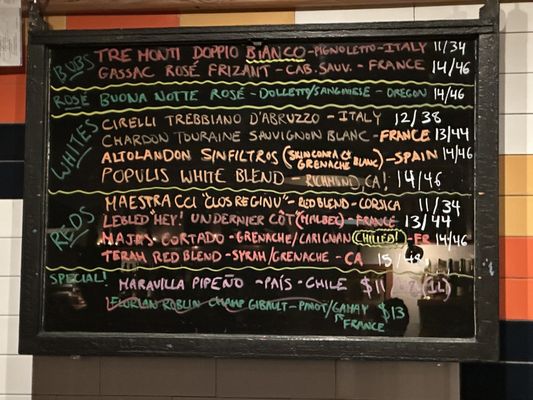 BUBS
TRE MONTI DOPPIO BIANCO - PIGNOLETTO - ITALY 11/34
GASSAC ROSÉ FRIZANT - CAB. SAUV. - FRANCE 14/46
ROSÉ BUONA NOTTE ROSÉ - DOLCETTO/SANGIOVESE - OREGON 14/46
WHITES
CIRELLI TREBBIANO D'ABRUZZO - ITALY 12/38
CHARDON TOURAINE SAUVIGNON BLANC - FRANCE 13/44
ALTOLANDON SINFILTROS (SKIN CONTACT GRENACHE BLANC) - SPAIN 14/46
POPULIS WHITE BLEND - RICHMOND CA! 14/46
REDS
MAESTRACCI "CLOS REGINU" - RED BLEND - CORSICA 11/34
LEBLED "HEY! UN DERNIER CÔT (MALBEC) - FRANCE 13/44
CORTADO - GRENACHE/CARIGNAN (CHILLED!) - FR 14/46
TERAH RED BLEND - SYRAH/GRENACHE - CA 15/48
SPECIAL!
MARAVILLA PIPEÑO - PAÍS - CHILE $11 (1L)
FLORIAN ROBLIN CHAMP GIBAULT - PINOT/GAMAY $13
FRANCE